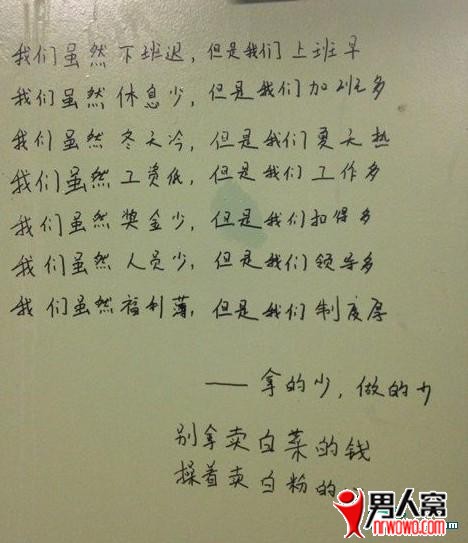 我们虽然下班迟，但是我们上班早
我们虽然休息少，但是我们加班多
我们虽然冬天冷，但是我们夏天热
我们虽然工资低，但是我们工作多
我们虽然奖金少，但是我们扣得多
我们虽然人员少，但是我们领导多
我们虽然福利薄，但是我们制度厚
——拿的少，做的少
别拿卖白菜的钱
操着卖白粉的
男人窝
nrwowo.com